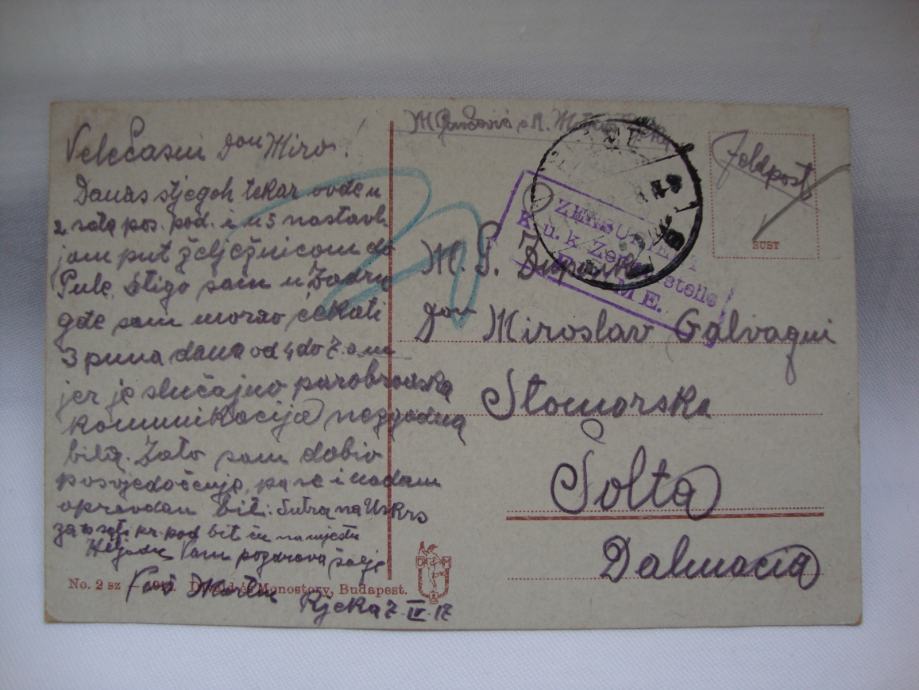 Velečasni don Miro!
Danas stjegoh tekar ovde u
2 sata pos. pod. i u 5 nastavlj
jam put željeznicom do
Pule. Stigo sam u Zadru
gde sam morao čekati
3 puna dana od 4 do 7. o.m.
jer je slučajno parobrodska
komunikacija nezgodna
bila. Zato sam dobio
posvjedočenje, pa se i nadam
opravdan biti. Sutra na Uskrs
za 10 sati pr. pod bit ću na mjestu
Vam pozdrava šalje
Vaš
Rjeka 7. IV. 17
No. 2 sz Monostory, Budapest.
Feldpost
BUST
ZENSURIERT
K. u. k. Zensurstelle
FIUME.
M. P. Župnik
don Miroslav Galvagni
Stomorska
Šolta
Dalmacia